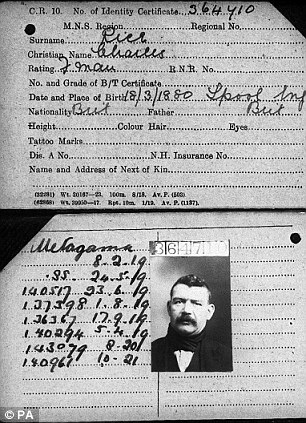 C.R. 10. No. of Identity Certificate 364710
M.N.S. Region Regional No.
Surname Rice
Christian Name Charles
Rating F. man R.N.R. No.
No. and Grade of B/T Certificate
Date and Place of Birth 18/3/1880 Lpool
Nationality Brit Father Brit
Height Colour Hair Eyes
Tattoo Marks
Dis. A No N.H. Insurance No.
Name and Address of Next of Kin
Metagama
8.2.19
SS. 24.5.19
140517 23.6.19
137398 1.8.19
136367 17.9.19
140294 5.4.19
143079 8.20
140967 10-21
©PA